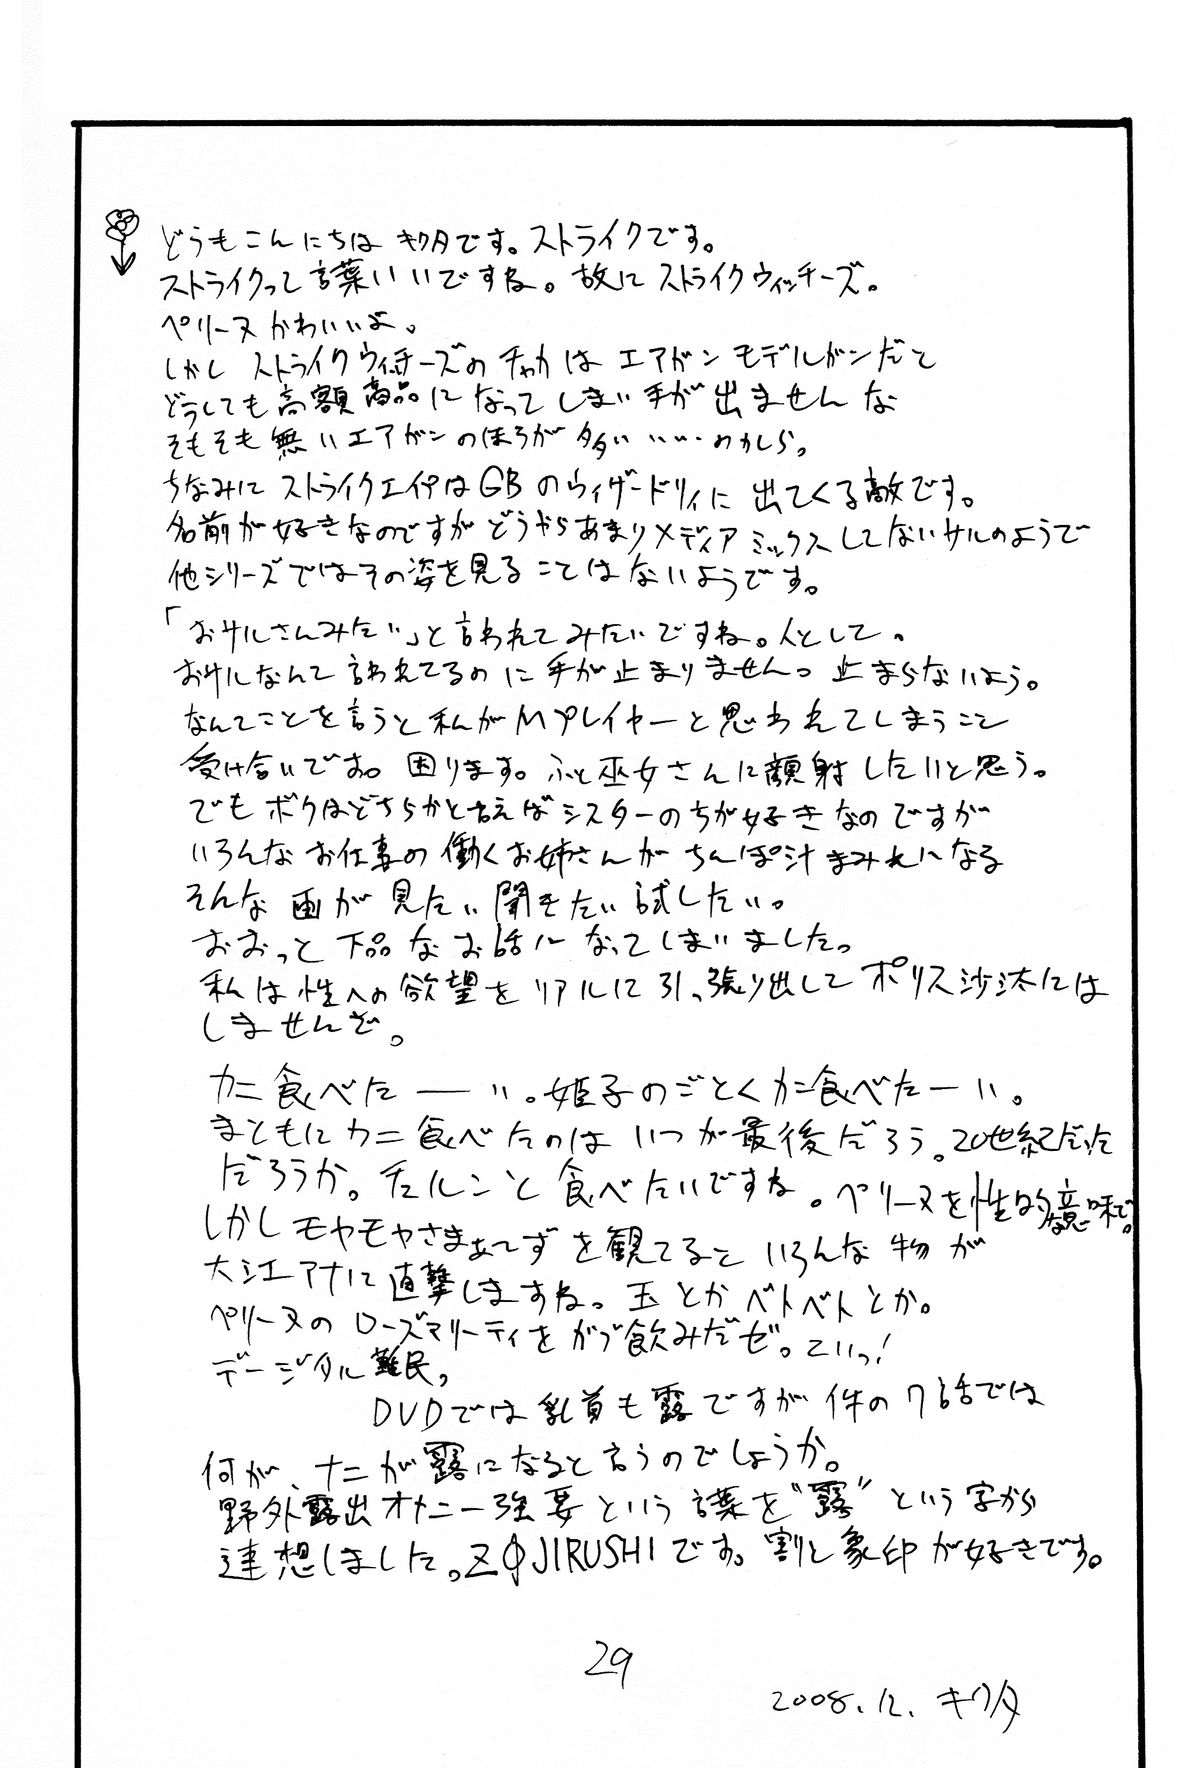 どうもこんにちは キクタです。ストライクです。
ストライクって言葉いいですね。故にストライクウィッチーズ。
ペリーヌかわいいよ。
しかし ストライクウィッチーズのチャカは エアガン モデルガンだと
どうしても高額商品になってしまい手が出ませんな
そもそも無いエアガンのほうが多い・・・・かしら。
ちなみに ストライクエイプはGBのウィザードリィに出てくる敵です。
名前が好きなのですがどうやらあまりメディアミックスしてないサルのようで
他シリーズではその姿を見ることはないようです。
「おサルさんみたい」と言われてみたいですね。人として。
おサルなんて言われてるのに手が止まりませんっ 止まらないよう。
なんてことを言うと私がMプレイヤーと思われてしまうこと
受け合いです。困ります。ふと巫女さんに顔射したいと思う。
でもボクはどちらかと言えばシスターのちが好きなのですが
いろんなお仕事の働くお姉さんがちんぽ汁まみれになる
そんな画が見たい聞きたい試したい。
おおっと下品なお話になってしまいました。
私は性への欲望をリアルに引っ張り出してポリス沙汰には
しませんぞ。
カニ食べたーーい。姫子のごとくカニ食べたーい。
まともにカニ食べたのはいつが最後だろう。20世紀だった
だろうか。チュルンと食べたいですね。ペリーヌを性的な意味で。
しかしモヤモヤさまぁ〜ずを観てるといろんな物が
大江アナに直撃しますね。玉とかベトベトとか。
ペリーヌのローズマリーティをがぶ飲みだぜ。こいっ!
デージタル難民。
DVDでは乳首も露ですが件の7話では
何が、ナニが露になると言うのでしょうか。
野外露出オナニー強要という言葉を"露"という字から
連想しました。ZOJIRUSHIです。割と象印が好きです。
29
2008.12. キクタ